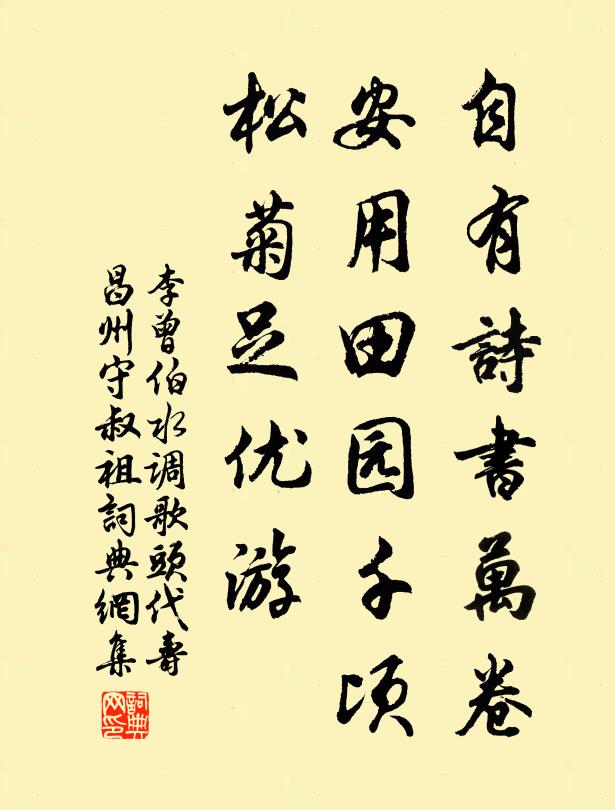 自有詩書萬卷
安用田园千顷
松菊足优游
李曾伯水调歌頭代壽
昌州守叔祖詞典網集
詞典
网印